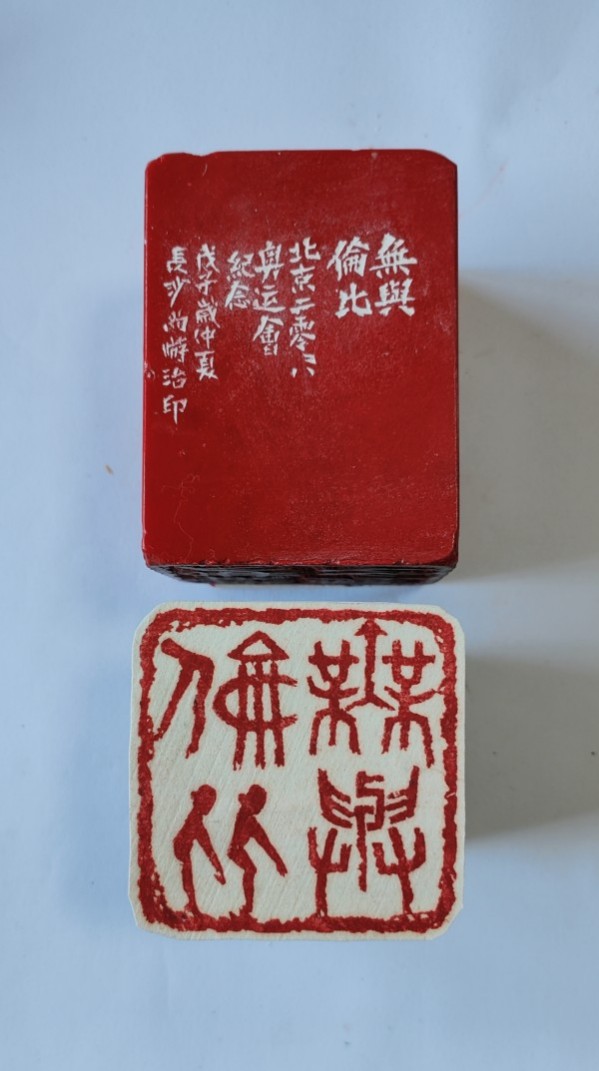 無與
倫比
北京二零零八
奥运會
紀念
戊子歲仲夏
長沙尚游治印
無與
倫比